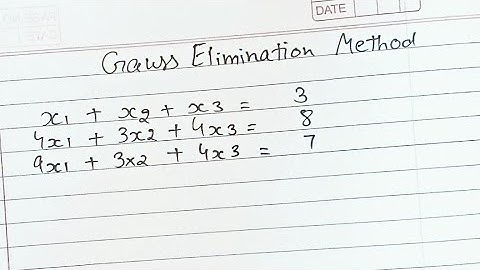 DATE
Gauss Elimination Method
x1 + x2 + x3 = 3
4x1 + 3x2 + 4x3 = 8
9x1 + 3x2 + 4x3 = 7